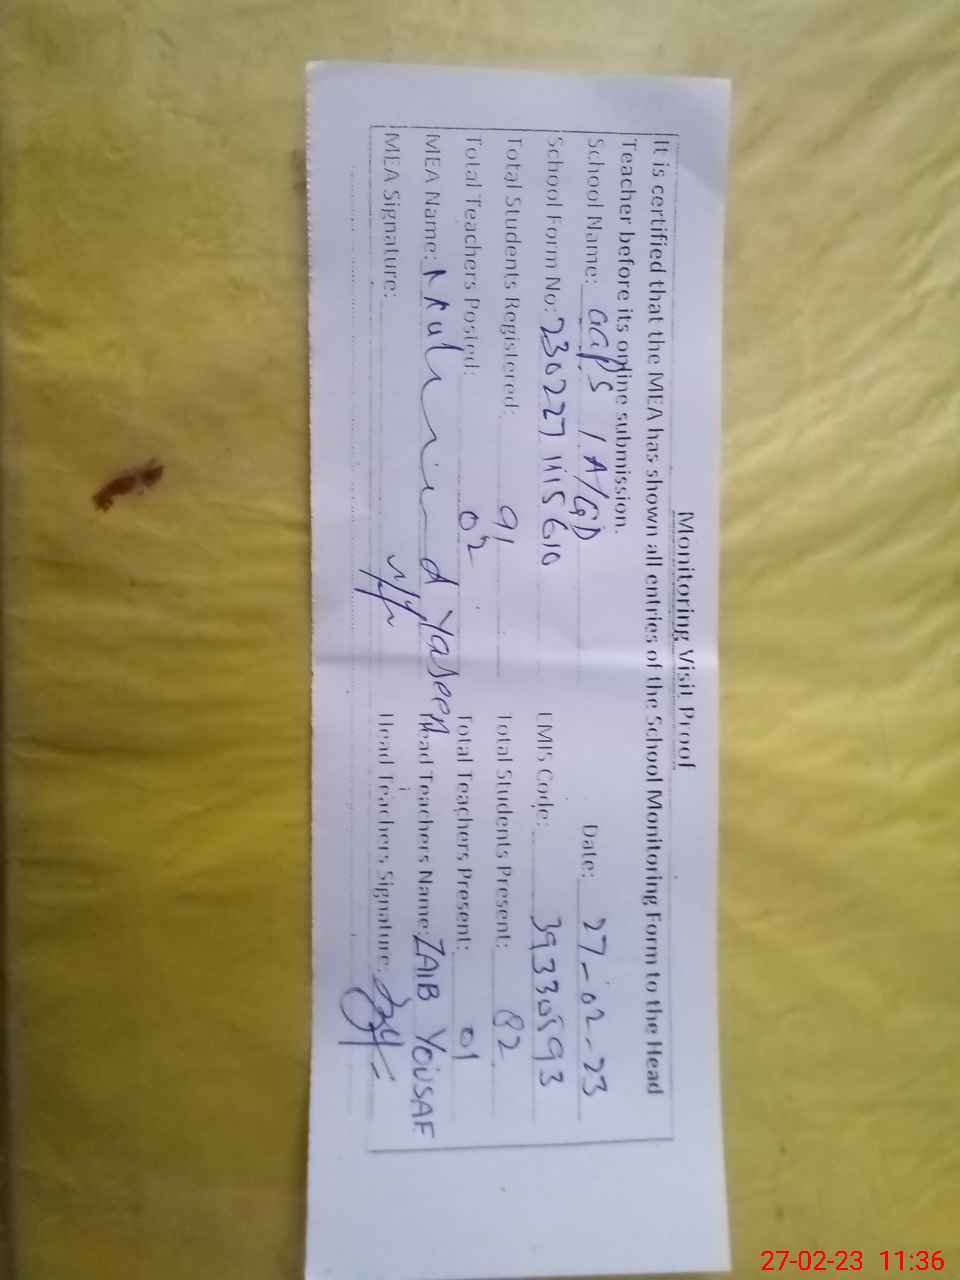 Monitoring Visit Proof
It is certified that the MEA has shown all entries of the School Monitoring Form to the Head
Teacher before its online submission.
School Name: GGPS 1A/GD Date: 27-02-23
School Form No: 230227 1115 610 EMIS Code: 39330593
Total Students Registered: 91 Total Students Present: 82
Total Teachers Posted: 02 Total Teachers Present: 01
MEA Name: Yaseen Head Teachers Name: ZAIB YOUSAF
MEA Signature: Head Teachers Signature:
27-02-23 11:36